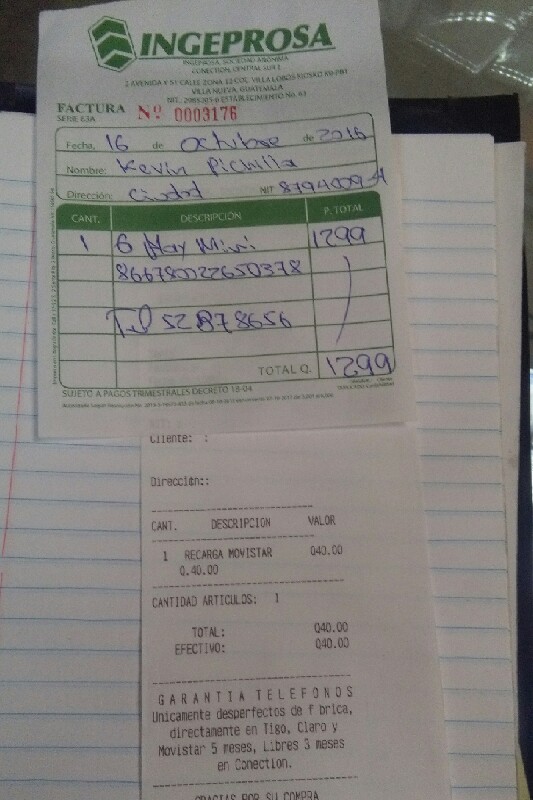 INGEPROSA
INGEPROSA, SOCIEDAD ANÓNIMA
CONECTION CENTRAL SUR I
VILLA NUEVA, GUATEMALA
FACTURA Nº 0003176
SERIE E3A
Fecha, 16 de octubre de 2016
Nombre: Kevin Pichilla
Dirección: Ciudad NIT 8794009-1
CANT. DESCRIPCIÓN P. TOTAL
1 G Play Mini 1299
866780022650378
Tel 52878656
TOTAL Q. 1299
SUJETO A PAGOS TRIMESTRALES DECRETO 18-04
Cliente: :
Dirección::
CANT. DESCRIPCION VALOR
1 RECARGA MOVISTAR Q40.00
Q.40.00
CANTIDAD ARTICULOS: 1
TOTAL: Q40.00
EFECTIVO: Q40.00
GARANTIA TELEFONOS
Unicamente desperfectos de f brica,
directamente en Tigo, Claro y
Movistar 5 meses, Libres 3 meses
en Conection.
GRACIAS POR SU COMPRA